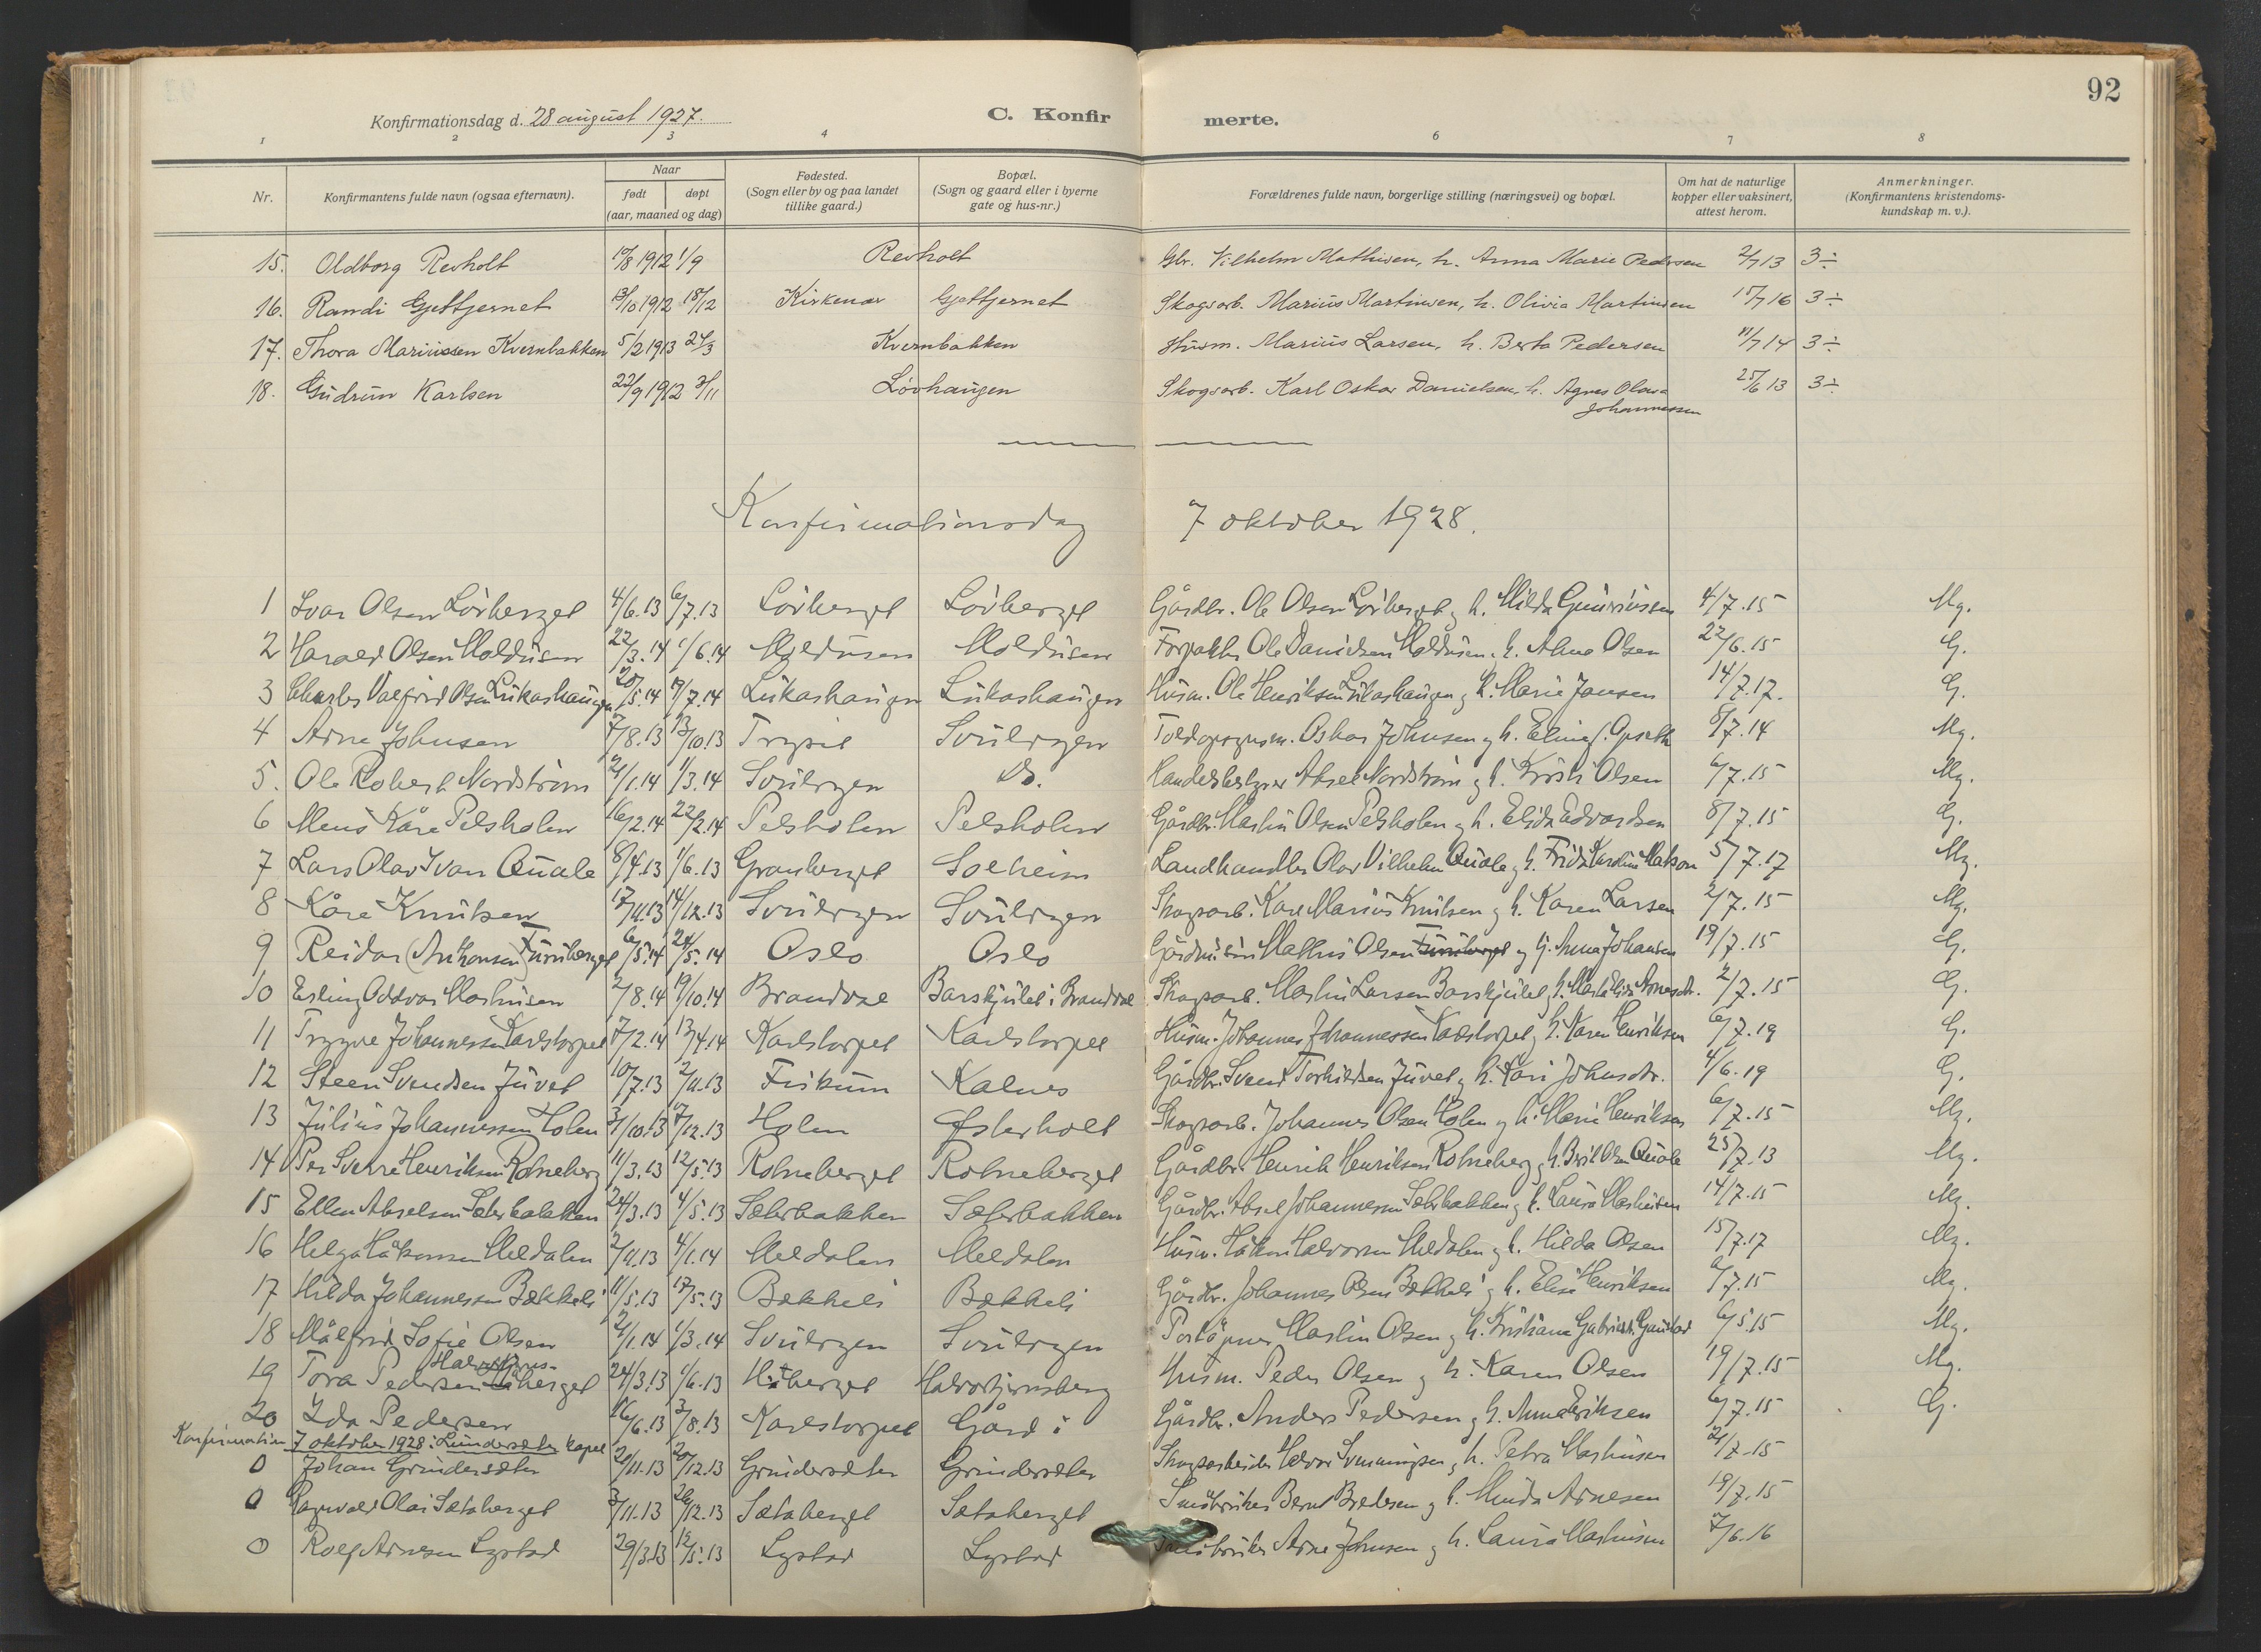 92
Konfirmationsdag d. 28 august 1927.
C. Konfirmerte.
1 2 3 4 6 7 8
Nr. Konfirmantens fulde navn (ogsaa efternavn). Naar født døpt (aar, maaned og dag) Fødested. (Sogn eller by og paa landet tillike gaard.) Bopæl. (Sogn og gaard eller i byerne gate og hus-nr.) Forældrenes fulde navn, borgerlige stilling (næringsvei) og bopæl. Om hat de naturlige kopper eller vaksinert, attest herom. Anmerkninger. (Konfirmantens kristendoms-kundskap m. v.).
15. Oldborg Revholt 10/8 1912 1/9 Revholt Gbr. Vilhelm Mathisen, h. Anna Marie Pedersen 2/7 13 3÷
16. Randi Gjettjernet 13/10 1912 18/12 Kirkenær Gjettjernet Skogsarb. Marius Martinsen, h. Olivia Martinsen 15/7 16 3÷
17. Thora Mariussen Kvernbakken 5/2 1913 24/3 Kvernbakken Husm. Marius Larsen, h. Berta Pedersen 11/7 14 3÷
18. Gudrun Karlsen 22/9 1912 3/11 Løvhaugen Skogsarb. Karl Oskar Danielsen, h. Agnes Olava Johannessen 25/6 13 3÷
Konfirmationsdag 7 oktober 1928.
1 Ivar Olsen Løvberget 4/6.13 6/7.13 Løvberget Løvberget Gårdbr. Ole Olsen Løvberget og h. Milda Gunriussen 4/7.15 Mg.
2 Harald Olsen Moldusen 22/3.14 1/6.14 Moldusen Moldusen Forpakter Ole Danielsen Moldusen, h. Alma Olsen 22/6.15 G.
3 Charles Valfrid Olsen Lukashaugen 20/5.14 19/7.14 Lukashaugen Lukashaugen Husm. Ole Henriksen Lukashaugen og h. Marie Jansen 14/7.17. G.
4 Arne Johnsen 7/8.13 13/10.13 Trysil Svulryen Toldopsynsm. Oskar Johnsen og h. Eline f. Opseth 8/7.14 Mg.
5. Ole Robert Nordstrøm 21/1.14 1/3.14 Svulryen Do. Handelsbestyrer Aksel Nordstrøm og h. Kristi Olsen 6/7.15 Mg.
6 Mens Kåre Pelsholen 16/2.14 22/2.14 Pelsholen Pelsholen Gårdbr. Martin Olsen Pelsholen og h. Elida Edvardsen 8/7.15 G.
7 Lars Olav Ivan Quale 8/4.13 1/6.13 Granberget Solheim Landhandler Olav Vilhelm Quale og h. Frida Karoline 5/7.17 Mg.
8 Kåre Knutsen 17/11.13 14/12.13 Svulryen Svulryen Skogsarb. Karl Marius Knutsen og h. Karen Larsen 2/7.15 Mg.
9 Reidar (Antonsen) Furuberget 6/5.14 24/5.14 Oslo Oslo Mathis Olsen Furuberget og h. Anna Johansen 19/7.15 G.
10 Erling Oddvar Martinsen 2/8.14 19/10.14 Brandval Barskjulet i Brandval Skogsarb. Martin Larsen Barskjulet, h. 2/7.15 G.
11 Trygve Johannessen Karlstorpet 7/2.14 13/4.14 Karlstorpet Karlstorpet Husm. Johannes Johannessen Karlstorpet, h. Karen Henriksen 6/7.19 G.
12 Steen Svendsen Juvet 10/7.13 2/11.13 Fiskum Kalnes Gårdbr. Svend Torkildsen Juvet og h. Kari Johnsdtr. 4/6.19 G.
13 Julius Johannessen Holen 3/10.13 7/12.13 Holen Østerholt Skogsarb. Johannes Olsen Holen og h. Marie Henriksen 6/7.15 Mg.
14 Per Sverre Henriksen Rotneberg 11/3.13 12/5.13 Rotneberget Rotneberget Gårdbr. Henrik Henriksen Rotneberg, h. Berit Olsen Quale 25/7.13 Mg.
15 Ellen Akselsen Sæterbakken 24/3.13 4/5.13 Sæterbakken Sæterbakken Gårdbr. Aksel Johannessen Sæterbakken og h. Laura Martinsen 14/7.15 Mg.
16 Helga Håkonsen Meldalen 2/11.13 4/1.14 Meldalen Meldalen Husm. Håkon Halvorsen Meldalen og h. Hilda Olsen 15/7.17 Mg.
17 Hilda Johannessen Bækkeli 11/5.13 17/5.13 Bækkeli Bækkeli Gårdbr. Johannes Olsen Bækkeli og h. Elise Henriksen 6/7.15 Mg.
18 Målfrid Sofie Olsen 2/1.14 1/3.14 Svulryen Svulryen Poståpner Martin Olsen og h. Kristiane Gabrielsd. Gaustad 6/5.15 Mg.
19 Tora Pedersen Halvortjerns-berget 24/3.13 1/6.13 Håberget Halvortjernsberg Husm. Peder Olsen og h. Karen Olsen 19/7.15 Mg.
20 Ida Pedersen 16/6.13 3/8.13 Karlstorpet Gård i Gårdbr. Anders Pedersen og h. Anna Eriksen 6/7.15 G.
Konfirmation 7 oktober 1928 i Lundersæter kapel
0 Johan Grindersæter 20/11.13 20/12.13 Grindersæter Grindersæter Skogsarbeider Halvor Svenningsen og h. Petra Martinsen 21/7.15
0 Ragnvald Olai Sætaberget 3/11.13 26/12.13 Sætaberget Sætaberget Småbruker Bernt Bredesen og h. Minda Arnesen 19/7.15
0 Rolf Arnesen Lystad 29/3.13 12/5.13 Lystad Lystad Småbruker Arne Johnsen og h. Laura Martinsen 7/6.16